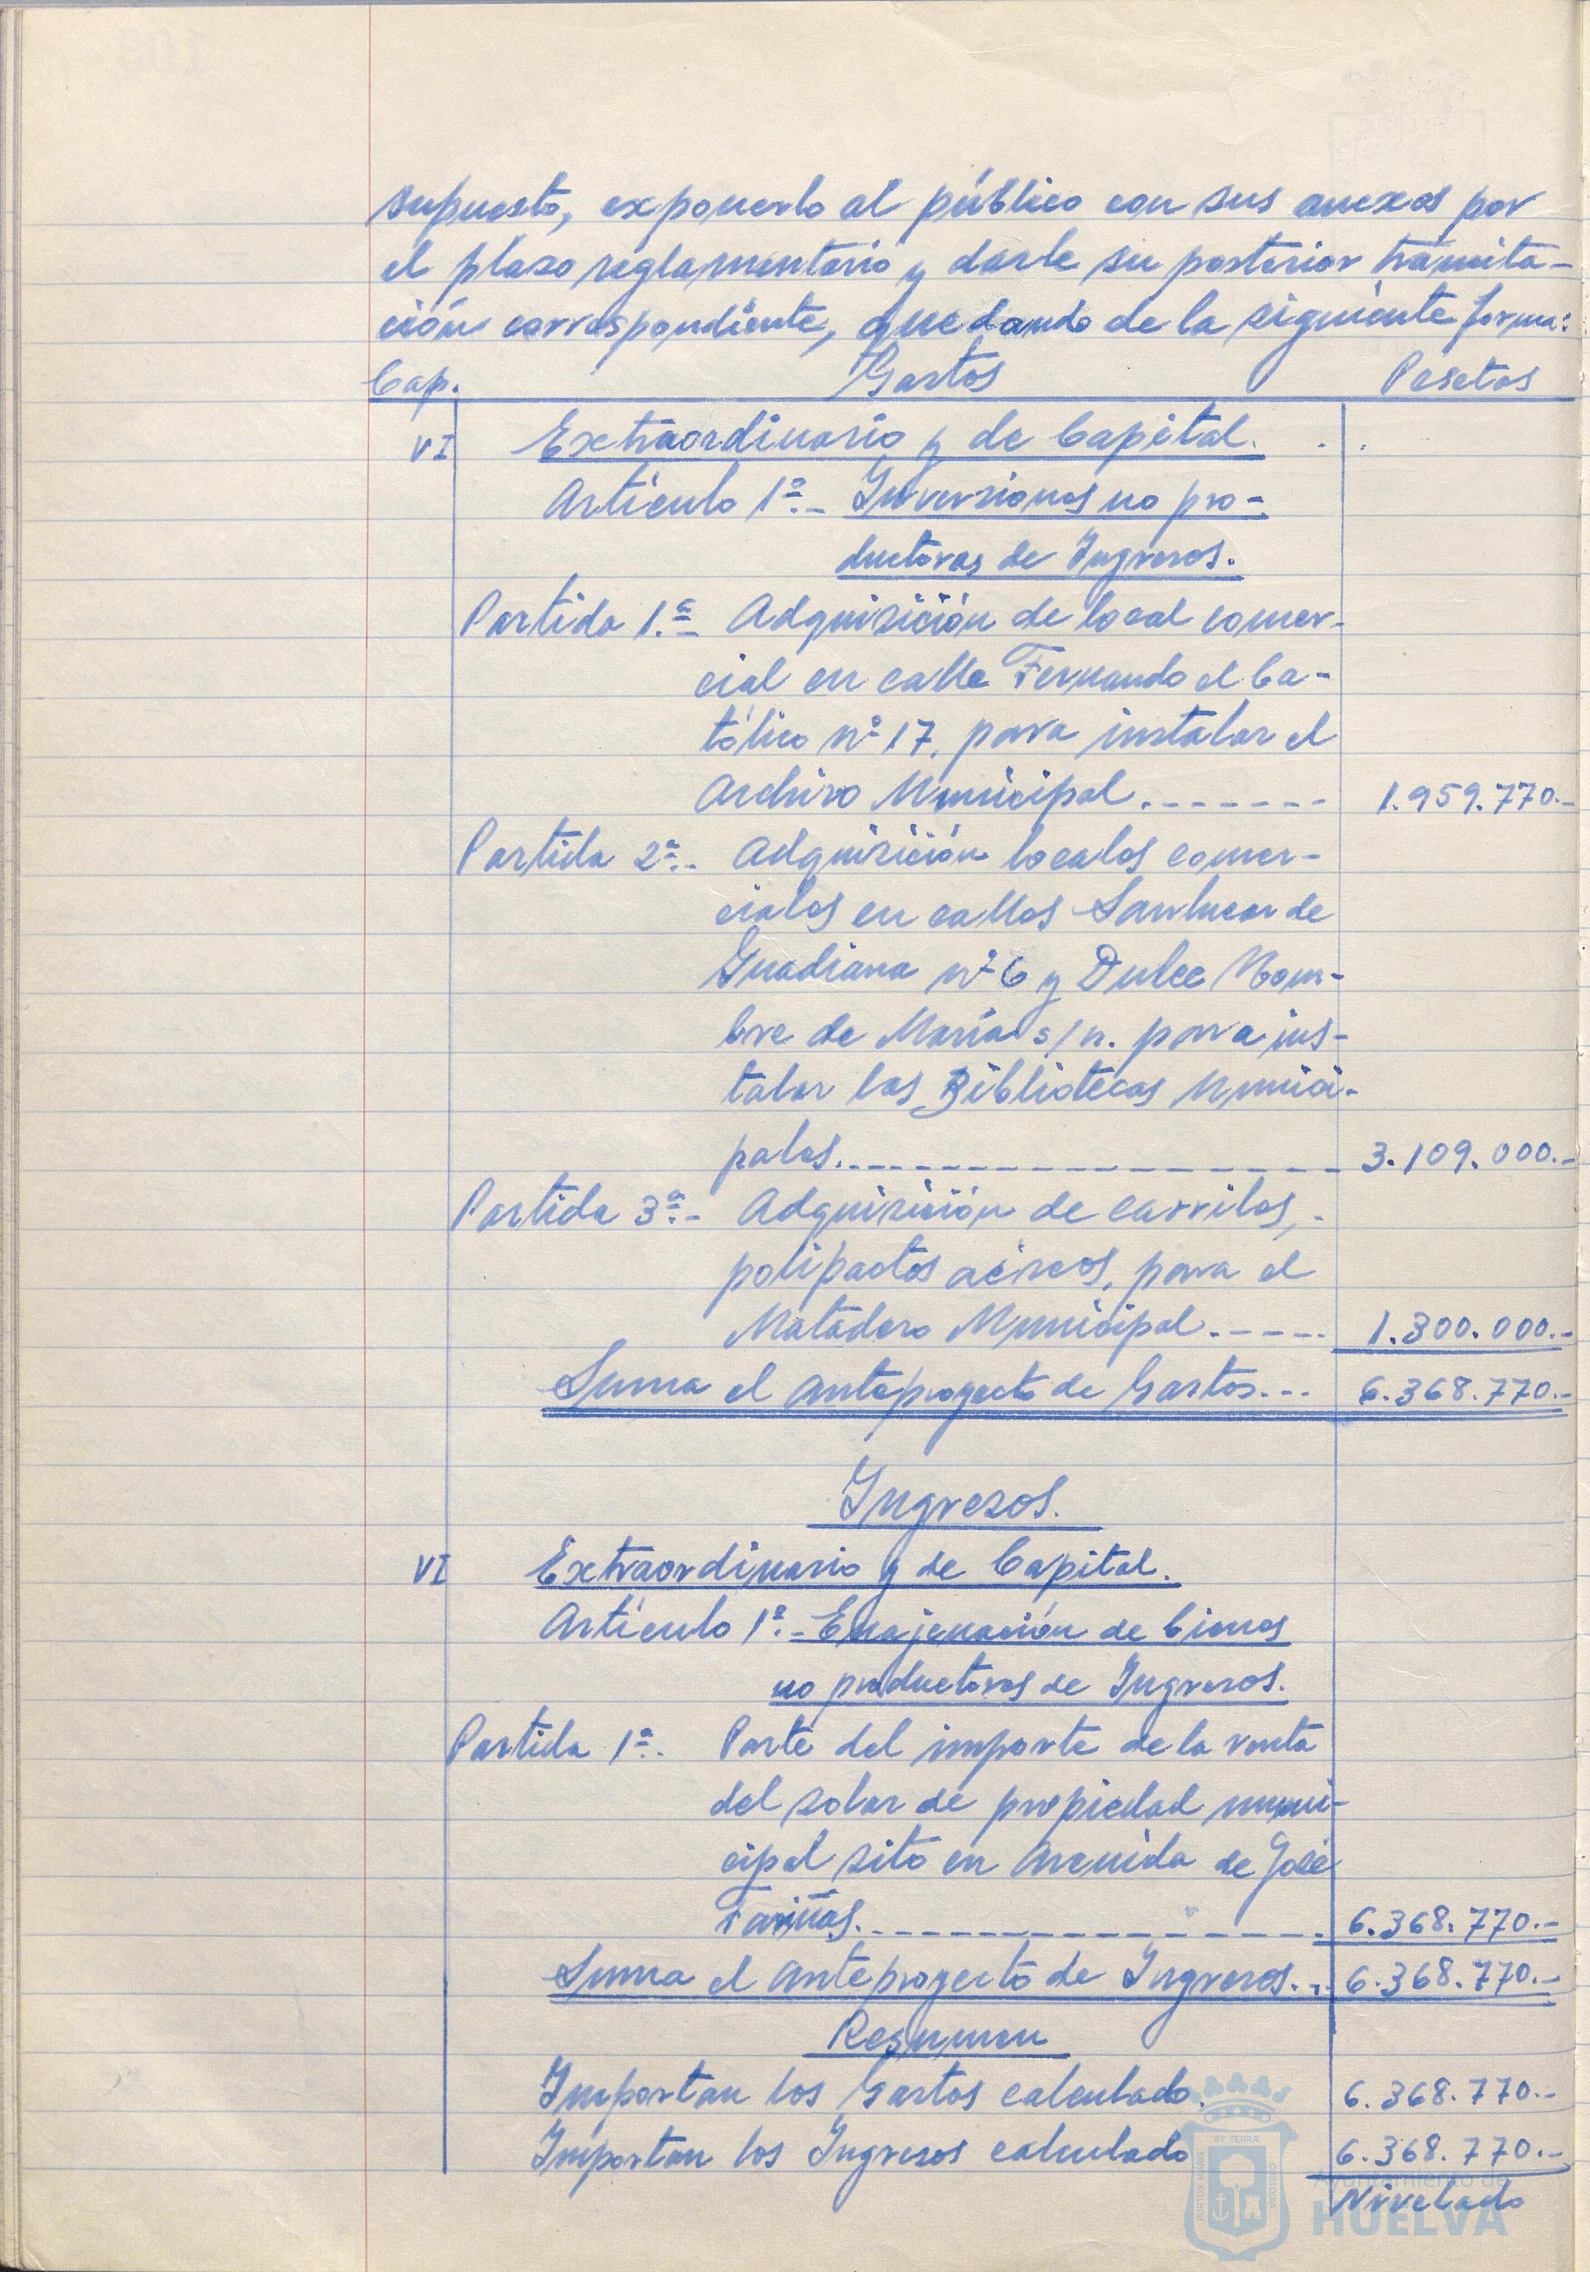 supuesto, exponerlo al público con sus anexos por
el plazo reglamentario y darle su posterior tramita-
ción correspondiente, quedando de la siguiente forma:
Cap. Gastos Pesetas
VI Extraordinario y de Capital.
Artículo 1º.- Inversiones no pro-
ductoras de Ingresos.
Partida 1.ª Adquisición de local comer-
cial en calle Fernando el Ca-
tólico nº 17, para instalar el
Archivo Municipal.------- 1.959.770.-
Partida 2ª.- Adquisición locales comer-
ciales en calles Sanlucar de
Guadiana nº 6 y Dulce Nom-
bre de María s/n. para ins-
talar las Bibliotecas Munici-
pales.------------------ 3.109.000.-
Partida 3ª.- Adquisición de carriles,
polipastos aéreos, para el
Matadero Municipal.----- 1.300.000.-
Suma el anteproyecto de Gastos... 6.368.770.-
Ingresos.
VI Extraordinario y de Capital.
Artículo 1º.- Enajenación de bienes
no productores de Ingresos.
Partida 1ª. Parte del importe de la venta
del solar de propiedad muni-
cipal sito en Avenida de José
Fariñas.---------------- 6.368.770.-
Suma el anteproyecto de Ingresos... 6.368.770.-
Resumen
Importan los Gastos calculado. 6.368.770.-
Importan los Ingresos calculado 6.368.770.-
Nivelado
PORTUS MARIS ET TERRAE CUSTODIA
Ayuntamiento de
HUELVA